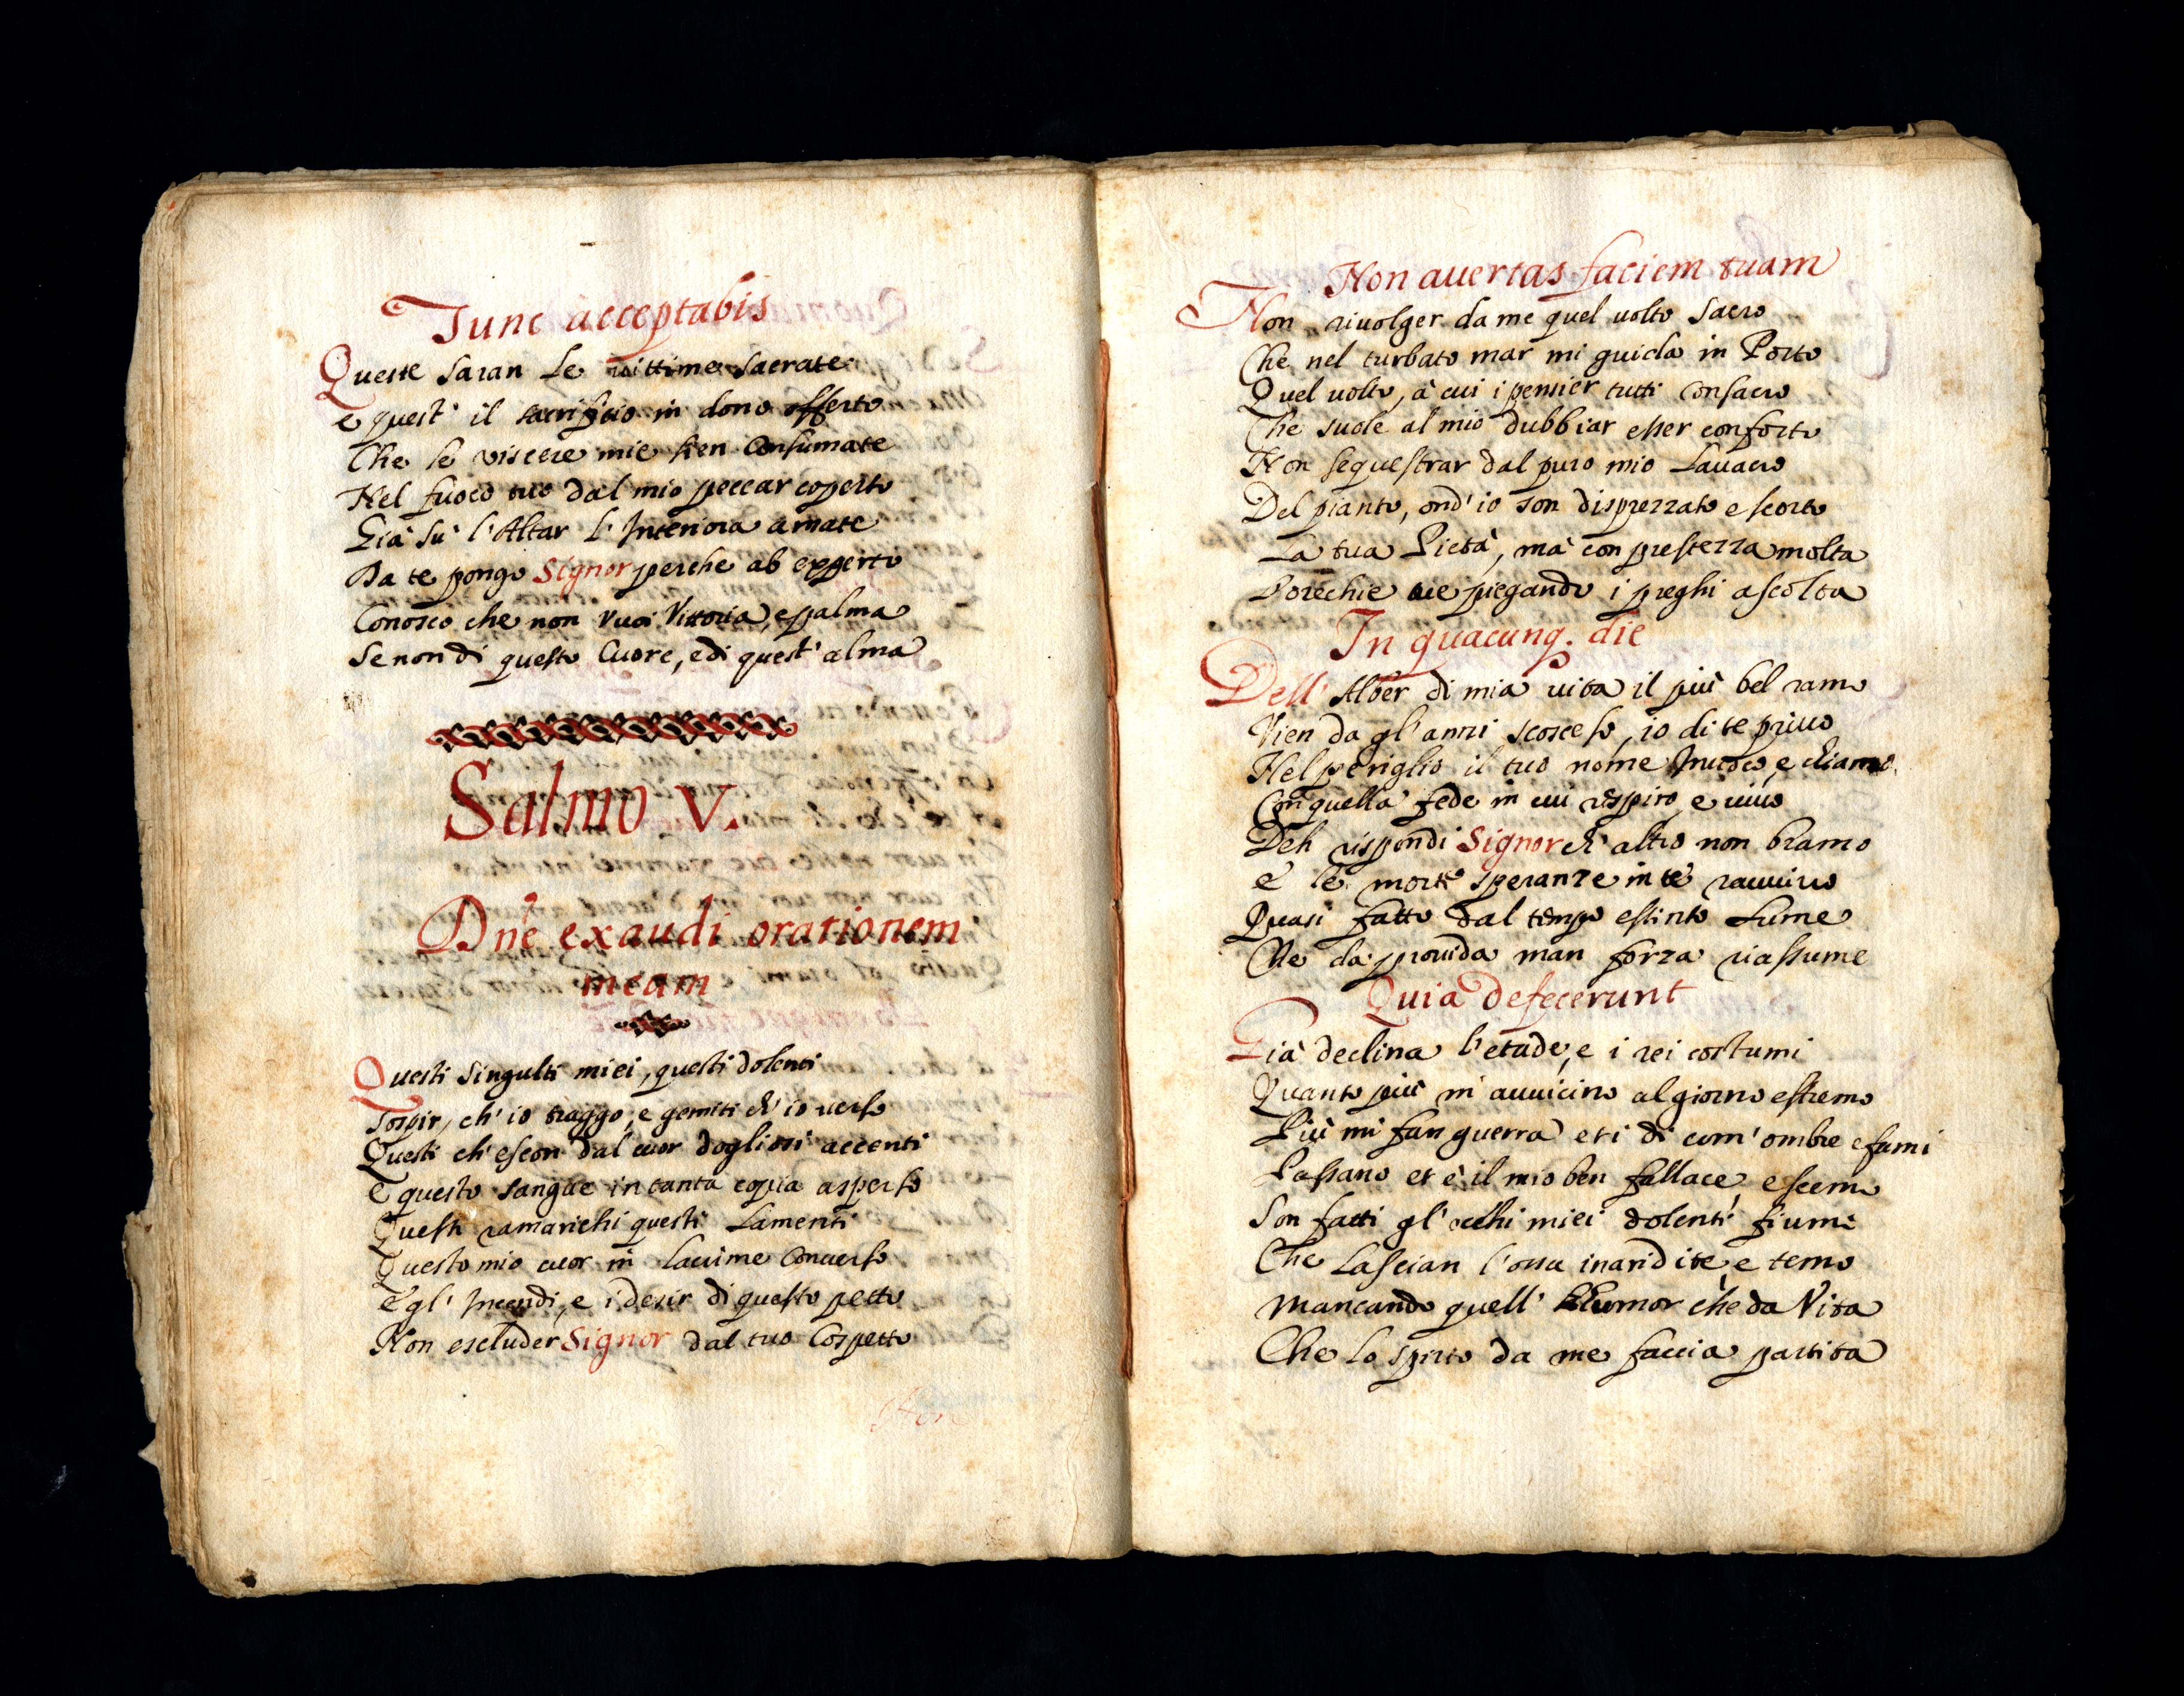 Tunc acceptabis
Queste saran le vittime sacrate
e quest' il sacrificio in dono offerto
Che le viscere mie sien consumate
Nel fuoco tuo dal mio peccar coperto
Già sù l'Altar l'Interiora amate
Da te pongo Signor perche ab experto
Conosco che non vuoi Vittoria, e palma
Se non di questo Cuore, e di quest' alma
Salmo V.
Dn̄e exaudi orationem
meam
Questi singulti miei, questi dolenti
Sospir, ch' io traggo, e gemiti ch' io verso
Questi ch' escon dal cuor dogliosi accenti
e questo sangue in tanta copia asperso
Questi ramarichi questi Lamenti
Questo mio cuor in lacrime converso
e gl' Incendi, e i desir di questo petto
Non escluder Signor dal tuo Cospetto
Non
Non auertas faciem tuam
Non riuolger da me quel uolto sacro
Che nel turbato mar mi guida in Porto
Quel uolto, à cui i pensier tutti consacro
Che suole al mio dubbiar esser conforto
Non sequestrar dal puro mio Lauacro
Del pianto, ond' io son disprezzato e scorto
La tua Pietà, mà con prestezza molta
L'orechie tue piegando i preghi ascolta
In quacunq. die
Dell' Alber di mia uita il più bel ramo
Vien da gl' anni scosceso, io di te priuo
Nel periglio il tuo nome Inuoco, e chiamo
Con quella fede in cui respiro, e uiuo
Deh rispondi Signor ch' altro non bramo
e le morte speranze in te rauuiuo
Quasi fatto dal tempo estinto Lume
Che da prouida man forza riassume
Quia defecerunt
Già declina l'etade, e i rei costumi
Quanto più m' auuicino al giorno estremo
Più mi fan guerra et i dì com' ombre e fumi
Passano et è il mio ben fallace e scemo
Son fatti gl' occhi miei dolenti fiumi
Che lascian l'ossa inaridite e temo
Mancando quell' Humor che da Vita
Che lo spirto da me faccia partita